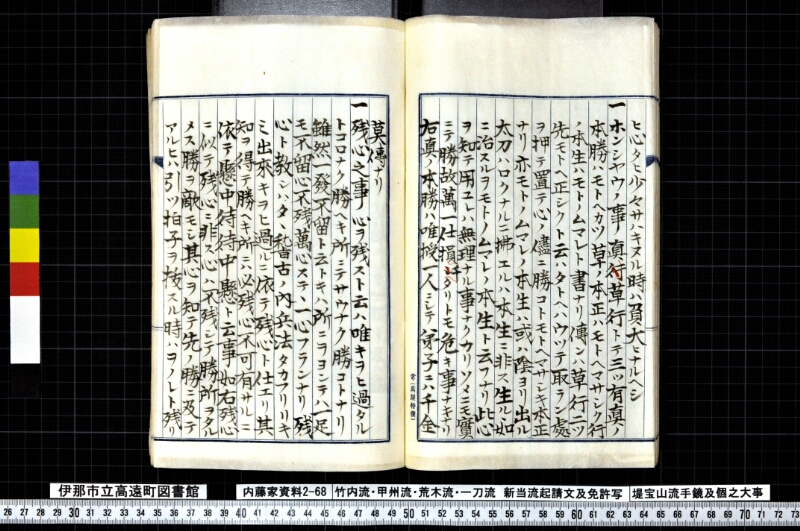 ヒ心タヒ少々サハキヌル時ハ負大ヒナルヘシ
一ホンシヤウノ事ノ真行草行トテ三ツ有真ノ
本勝ハモトヘカツ草ノ本正ハモトヘマサシク行
ノ本生ハモトノムマレト書ナリ傳シハ草行二ツ
先モトヘ正シクト云タトハウツテ取ラン處
ヲ押テ置テ心ノ儘ニ勝コトモトヘマサシキ本正
ナリ亦モトノムマレノ本生ハ或ハ陰ヨリ出ル
太刀ハロクナルニ拂エルハ本生ニ非ス生ル如
ニ治スルヲモトノムマレノ本生ト云フナリ此心
ヲ知テ用ユレハ無理ナル事ナクカリソメニモ實
ニテ勝故萬一仕損シタリトモ危キ事ナキナリ
右真ノ本勝ハ唯授一人ニシテ弟子ニハ千金
莫傳ナリ
一残心之事 心ヲ残スト云ハ唯キヲヒ過タル
トコロナク勝ヘキ所ニテサウナク勝コトナリ
雖然一發不留ト云トキハ所ニヨラシテハ一足
モ不留心不残萬心ステ一心フランナリ残
心ト教シハタ、稽古ノ内兵法タカフリリキ
ミ出來キヲヒ過ルニ依テ残心ト仕エリ其
知ヲ得テ勝ヘキ所ニハ必残心不可有サルニ
依テ懸中待待中懸ト云事ノ如右残心
ニ似テ残心ニ非ス心ノ不残シテ勝所ヲタル
メス勝ヲ敵モシ其心ヲ知テ先ノ勝ニ及テ
アルヒハ引ツ拍子ヲ抜スル時ハヲノレト残リ
伊那市立高遠町図書館
内藤家資料2-68
竹内流・甲州流・荒木流・一刀流 新当流起請文及免許写
堤宝山流手鏡及個之大事